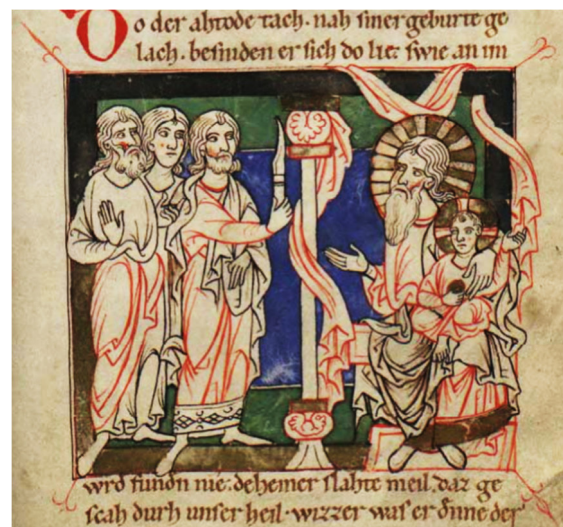 Do der ahtode tach. nah siner geburte ge
lach. besniden er sich do liez swie an im
wrd fundn nie. deheiner slahte meil. daz ge
scah durh unser heil. wizzer was er danne der